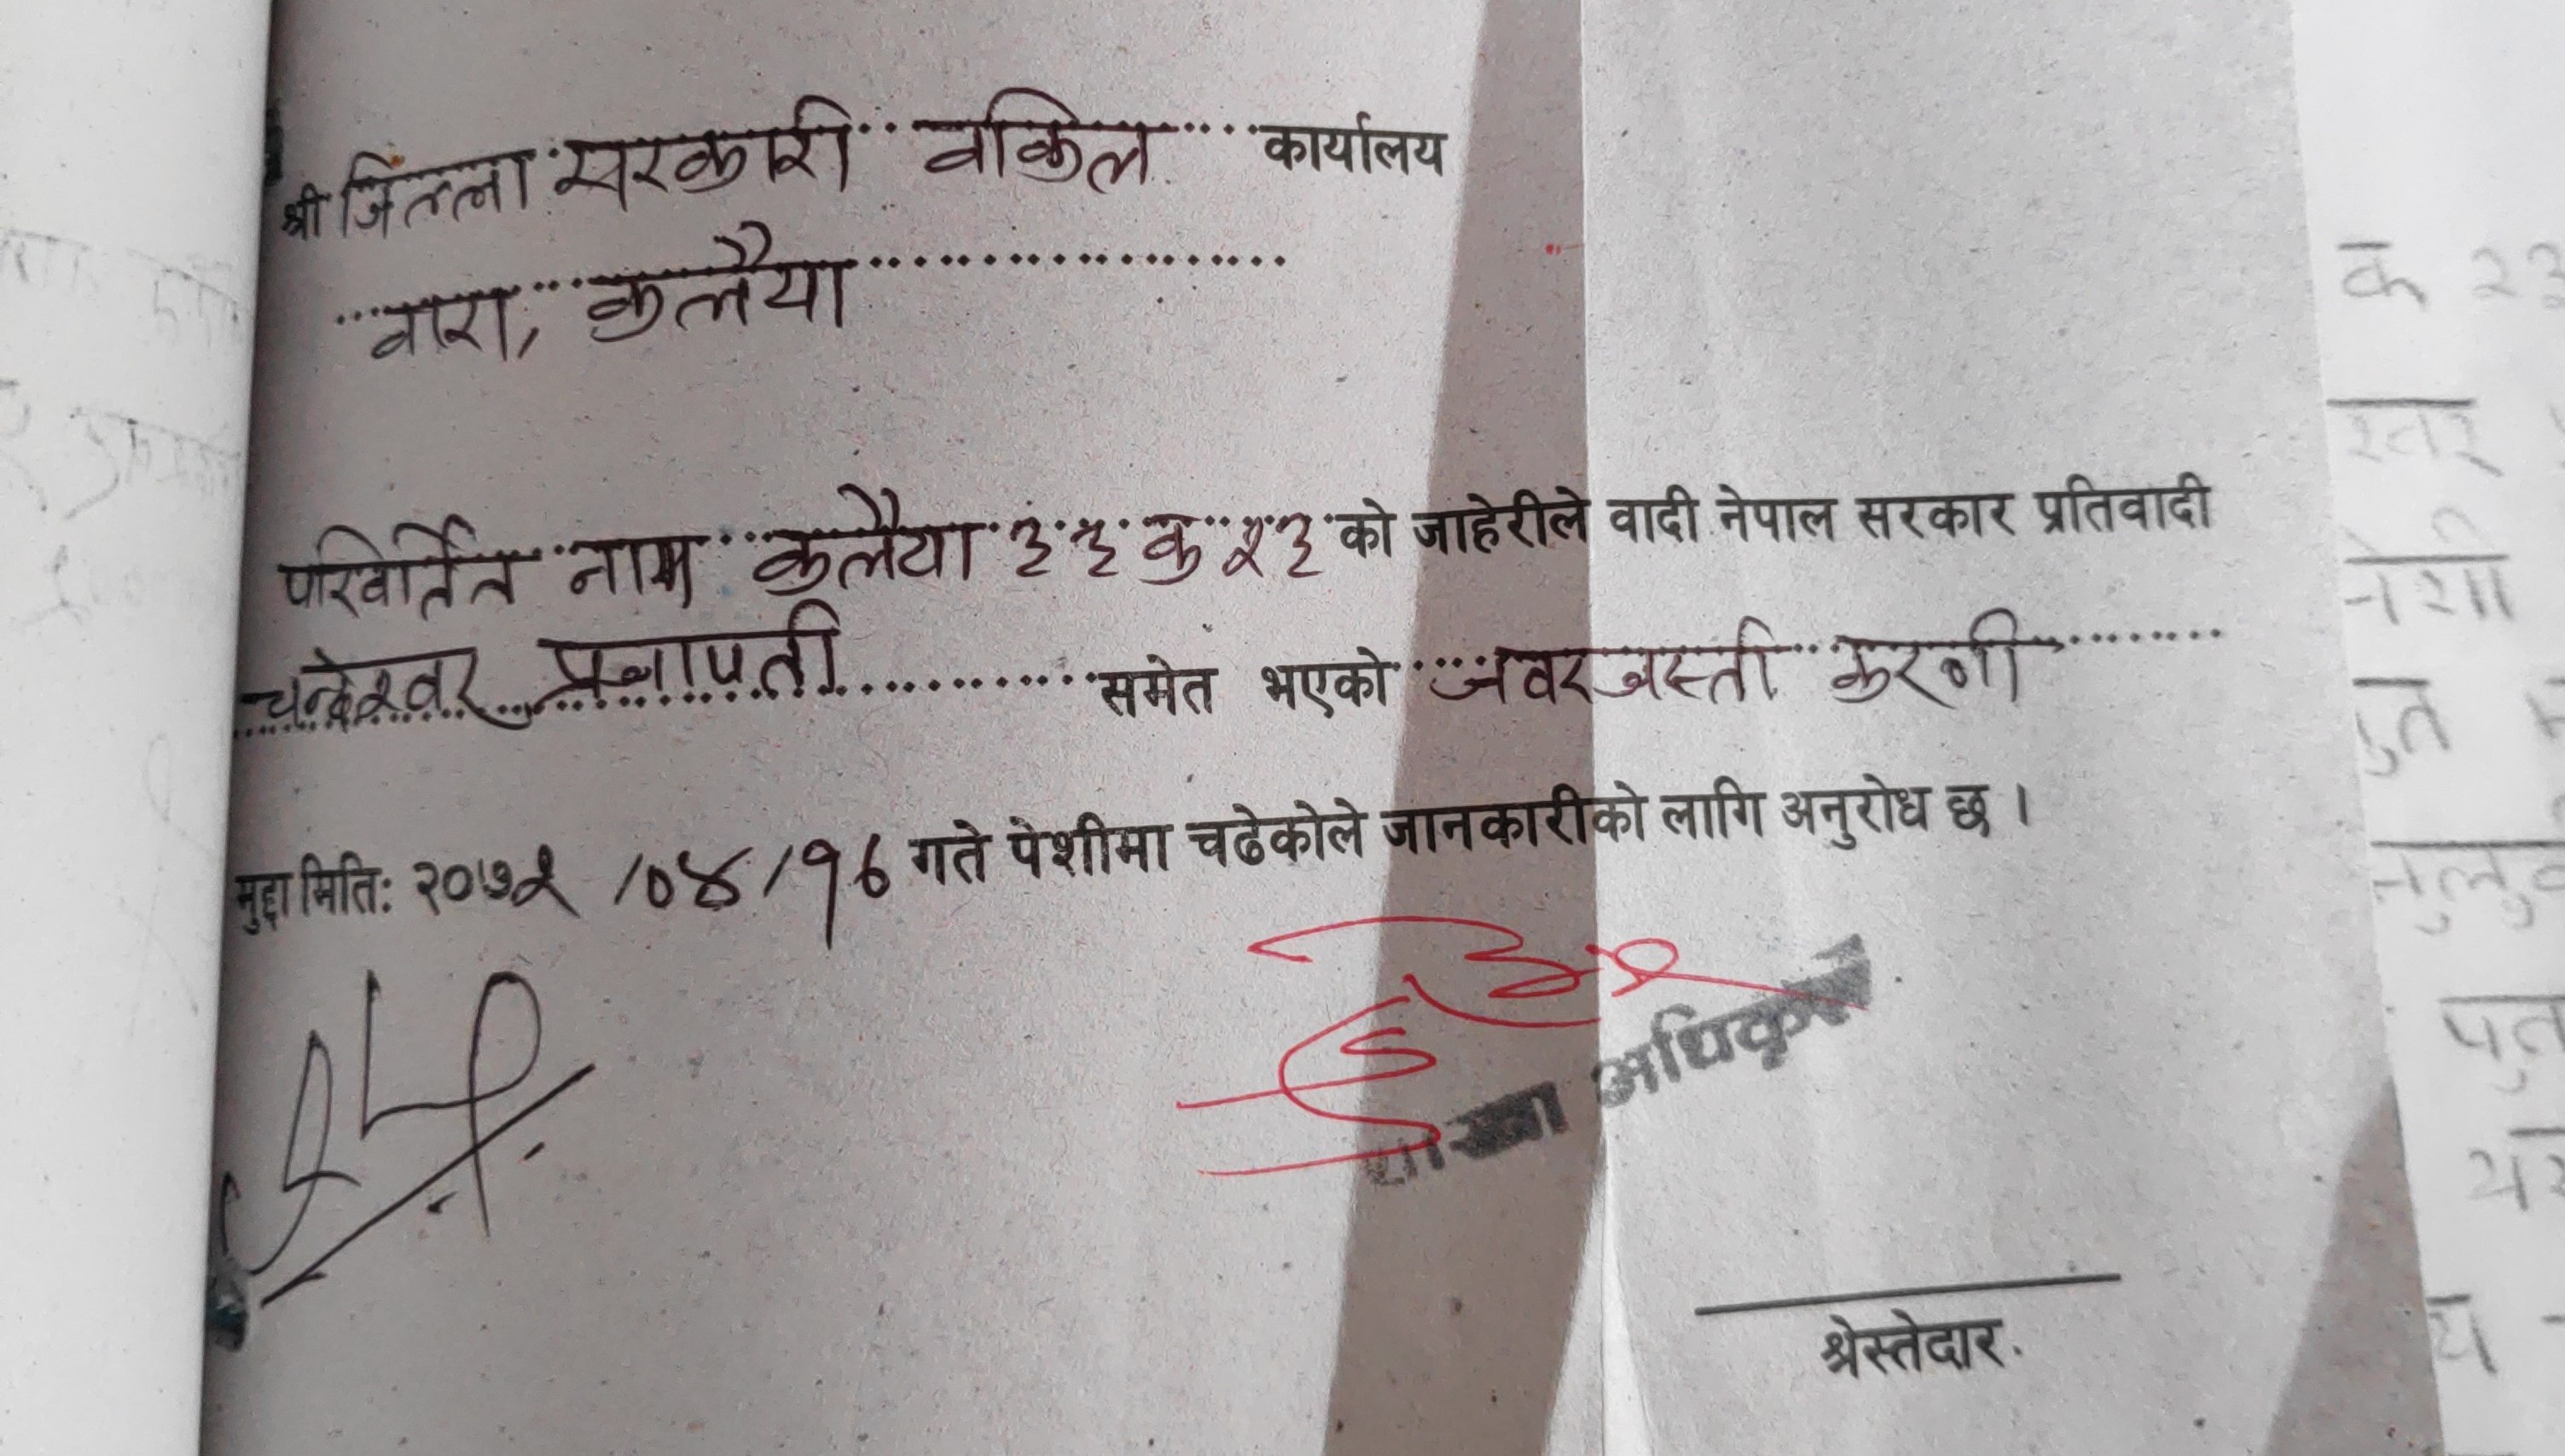 श्री जिल्ला सरकारी वकिल कार्यालय
बारा, कलैया
परिवर्तित नाम कलैया ३३ कु २३ को जाहेरीले वादी नेपाल सरकार प्रतिवादी
चन्देश्वर प्रजापती समेत भएको जवरजस्ती करणी
मुद्दा मिति: २०७२ /०४/१६ गते पेशीमा चढेकोले जानकारीको लागि अनुरोध छ ।
शाखा अधिकृत
श्रेस्तेदार.